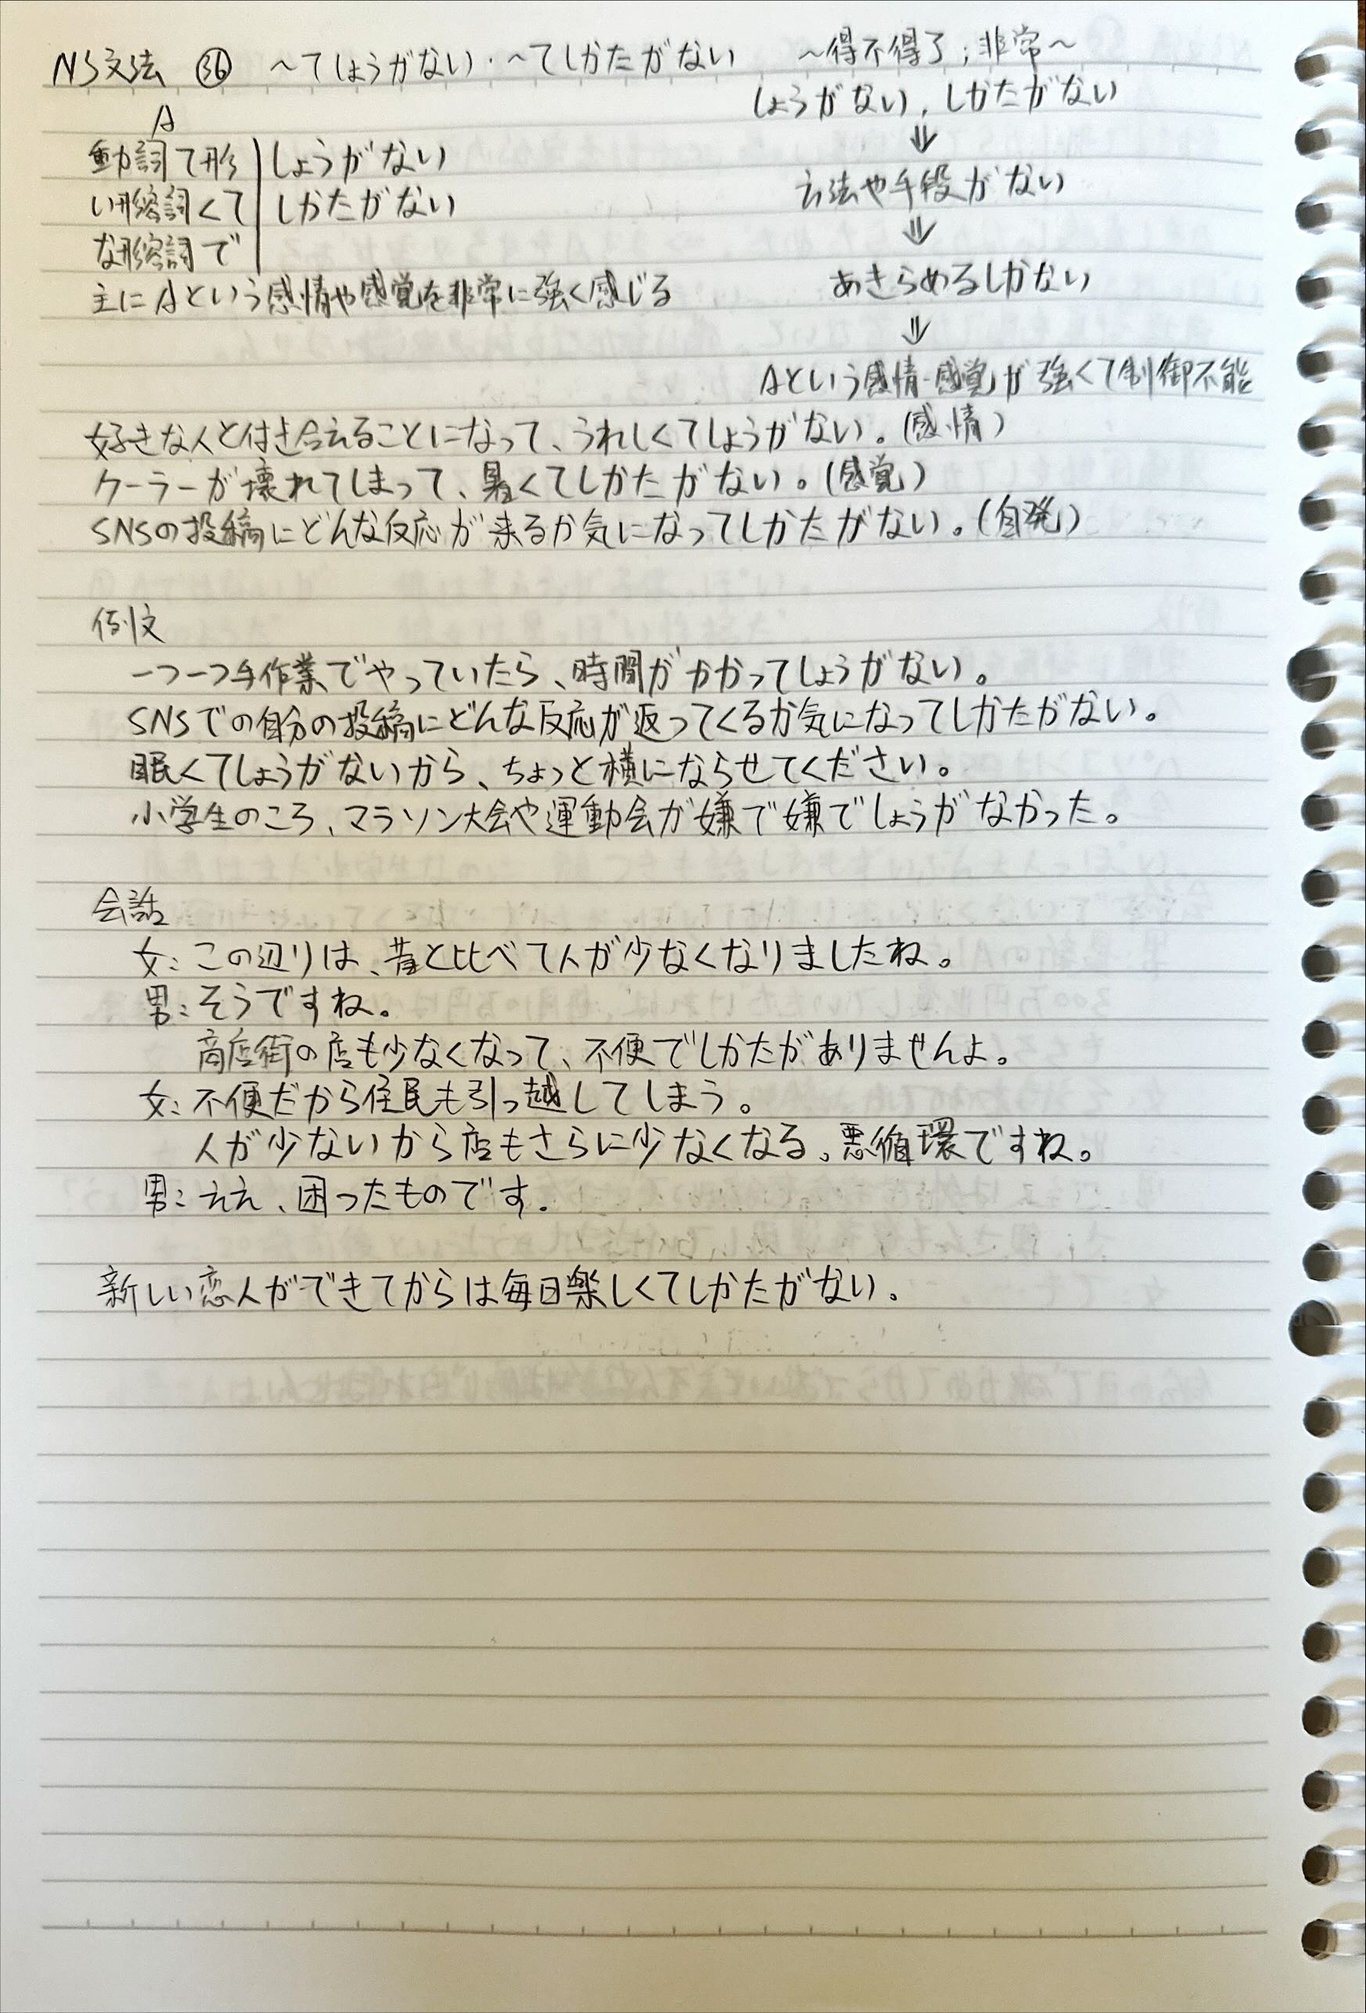 N3文法 ㊱ ～てしょうがない・～てしかたがない ～得不得了；非常～
しょうがない，しかたがない
⇓
方法や手段がない
⇓
あきらめるしかない
⇓
Aという感情・感覚が強くて制御不能
A
動詞て形 しょうがない
い形容詞くて しかたがない
な形容詞で
主にAという感情や感覚を非常に強く感じる
好きな人と付き合えることになって、うれしくてしょうがない。(感情)
クーラーが壊れてしまって、暑くてしかたがない。(感覚)
SNSの投稿にどんな反応が来るか気になってしかたがない。(自発)
例文
一つ一つ手作業でやっていたら、時間がかかってしょうがない。
SNSでの自分の投稿にどんな反応が返ってくるか気になってしかたがない。
眠くてしょうがないから、ちょっと横にならせてください。
小学生のころ、マラソン大会や運動会が嫌で嫌でしょうがなかった。
会話
女：この辺りは、昔と比べて人が少なくなりましたね。
男：そうですね。
商店街の店も少なくなって、不便でしかたがありませんよ。
女：不便だから住民も引っ越してしまう。
人が少ないから店もさらに少なくなる。悪循環ですね。
男：ええ、困ったものです.
新しい恋人ができてからは毎日楽しくてしかたがない.